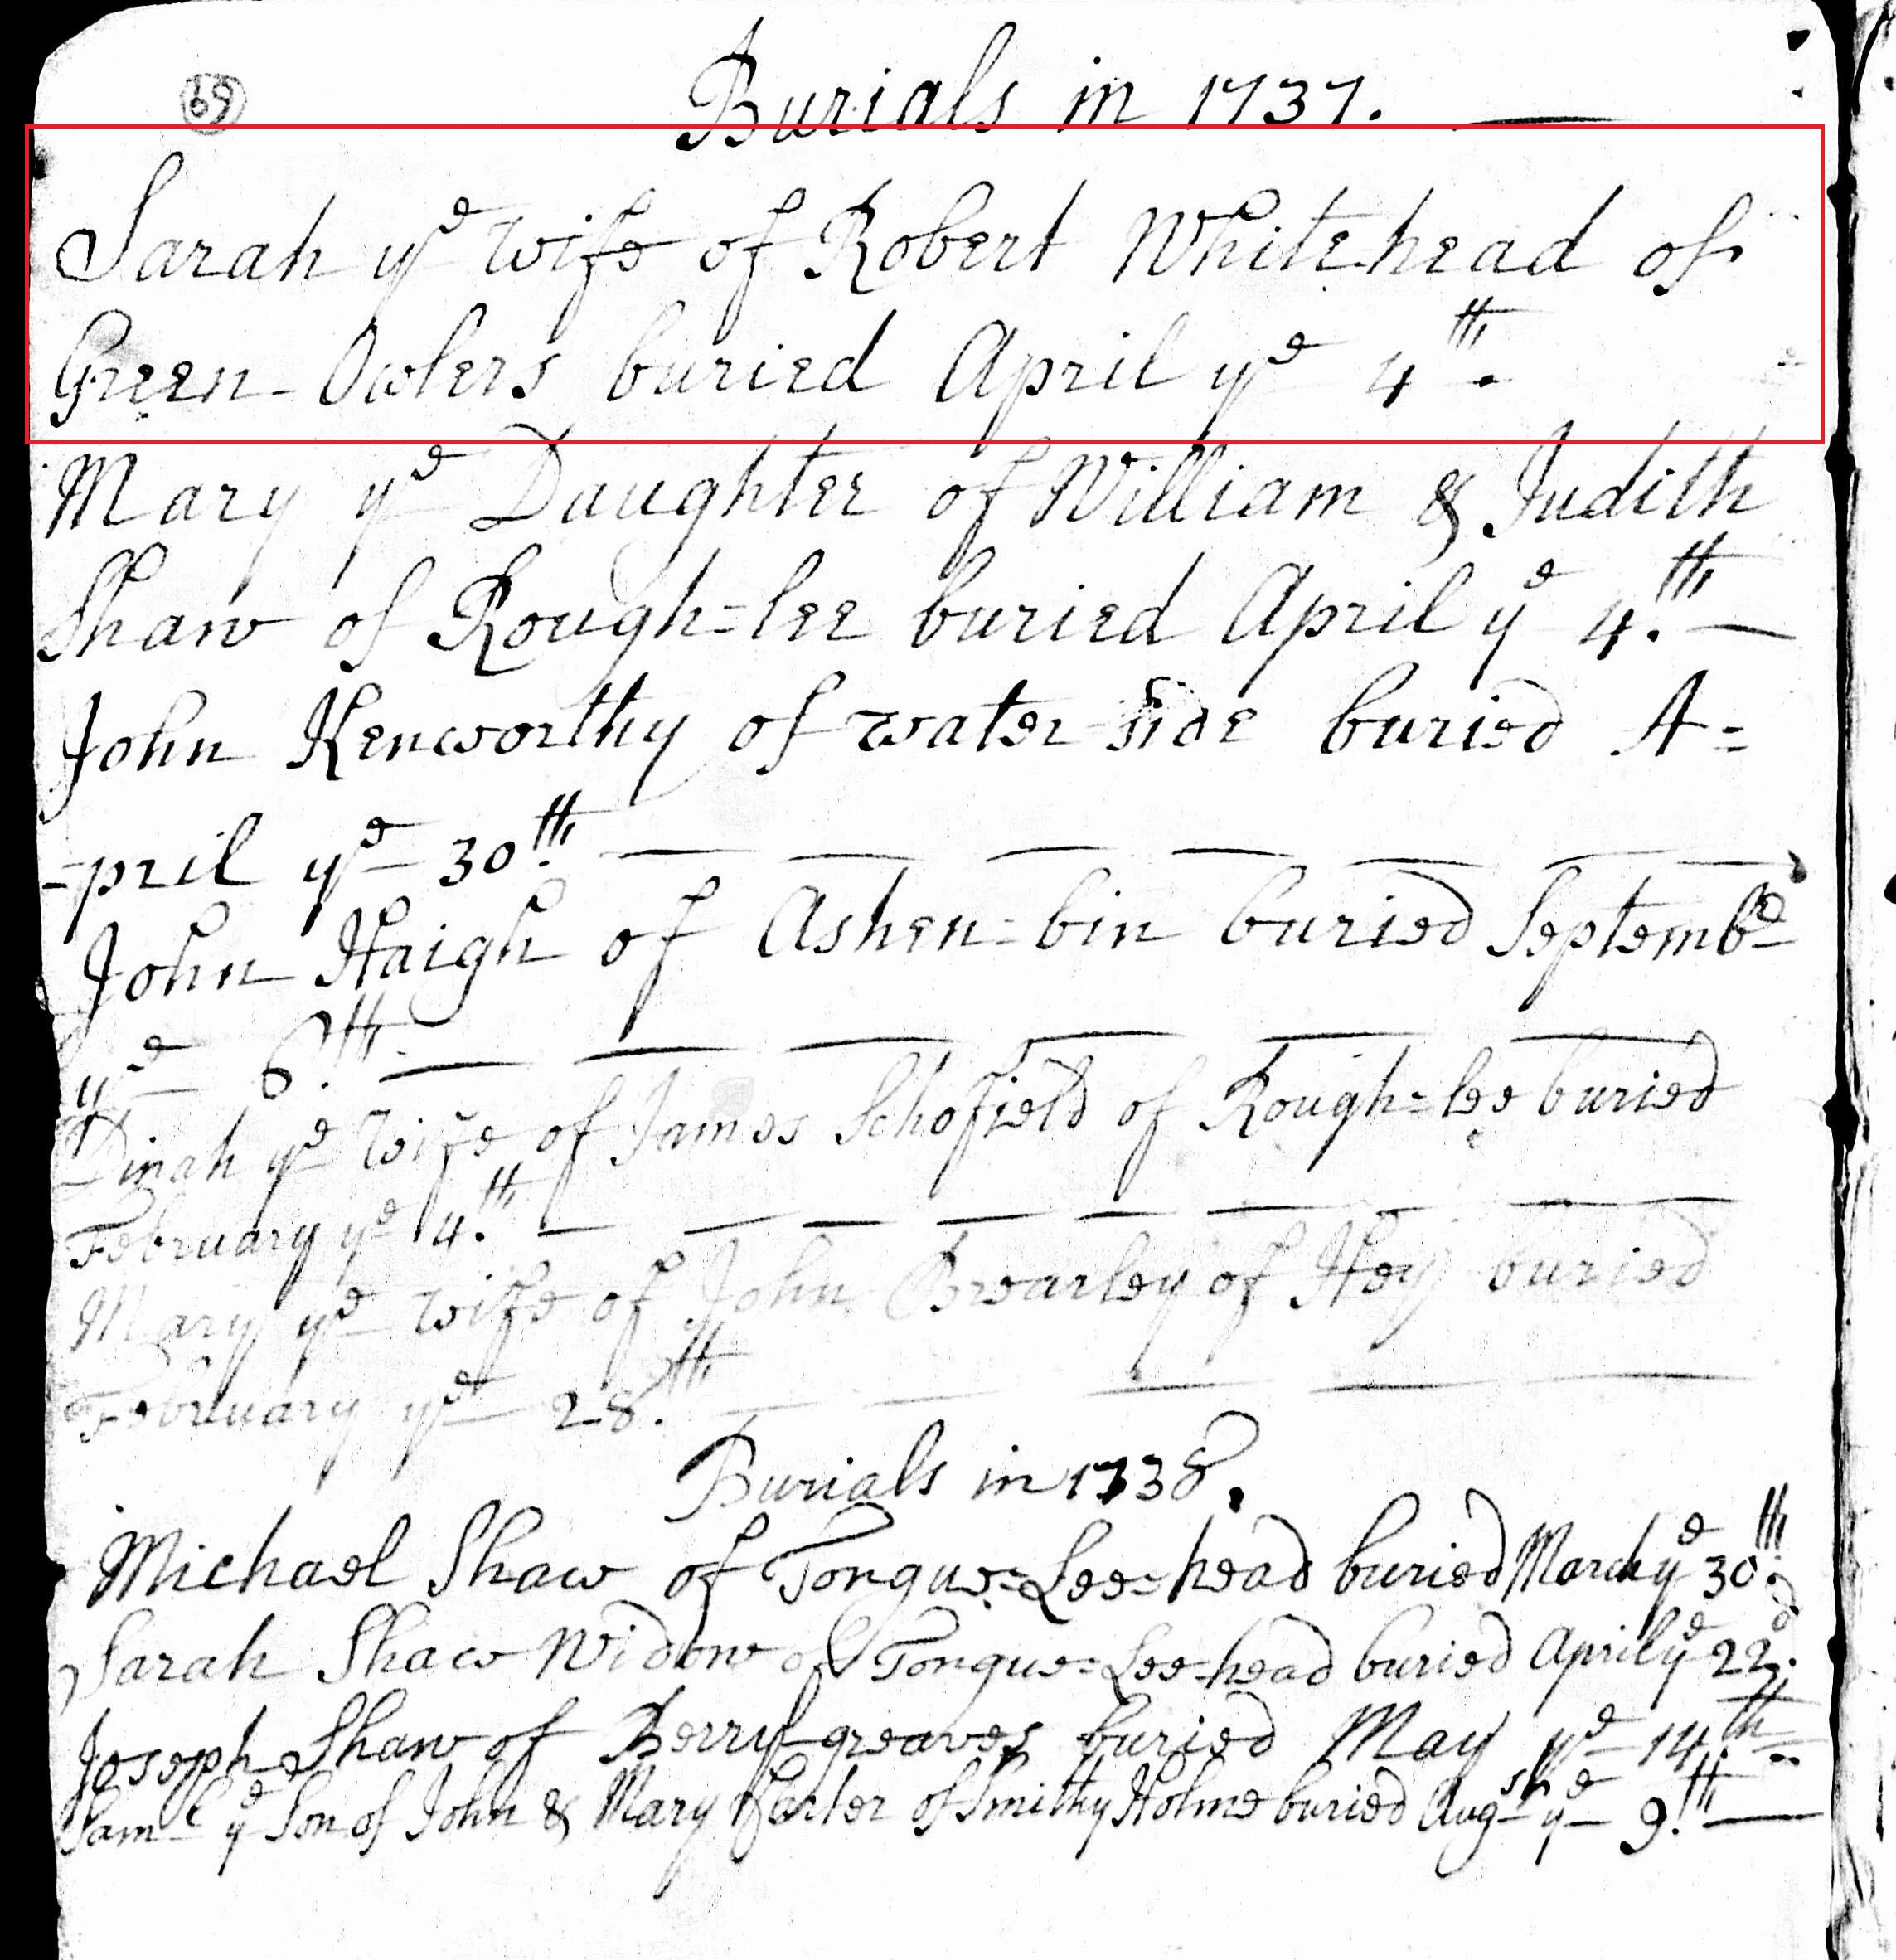 69
Burials in 1737.
Sarah yᵉ wife of Robert Whitehead of
Green-Owlers buried April yᵉ 4ᵗʰ.
Mary yᵉ Daughter of William & Judith
Shaw of Rough=lee buried April yᵉ 4.ᵗʰ
John Kenworthy of water-side buried A=
-pril yᵉ 30ᵗʰ.
John Haigh of Ashen=bin buried Septembᵉ
yᵉ 6.ᵗʰ
Dinah yᵉ Wife of James Schofield of Rough=lee buried
February yᵉ 4.ᵗʰ
Mary yᵉ wife of John Brearley of Hey buried
February yᵉ 28.ᵗʰ
Burials in 1738.
Michael Shaw of Tongue=Lee=head buried March yᵉ 30ᵗʰ.
Sarah Shaw Widow of Tongue=Lee-head buried April yᵉ 22ᵈ.
Joseph Shaw of Berry-greaves buried May yᵉ 14ᵗʰ.
Samˡ yᵉ Son of John & Mary of Smithy Holme buried Augˢᵗ yᵉ 9.ᵗʰ